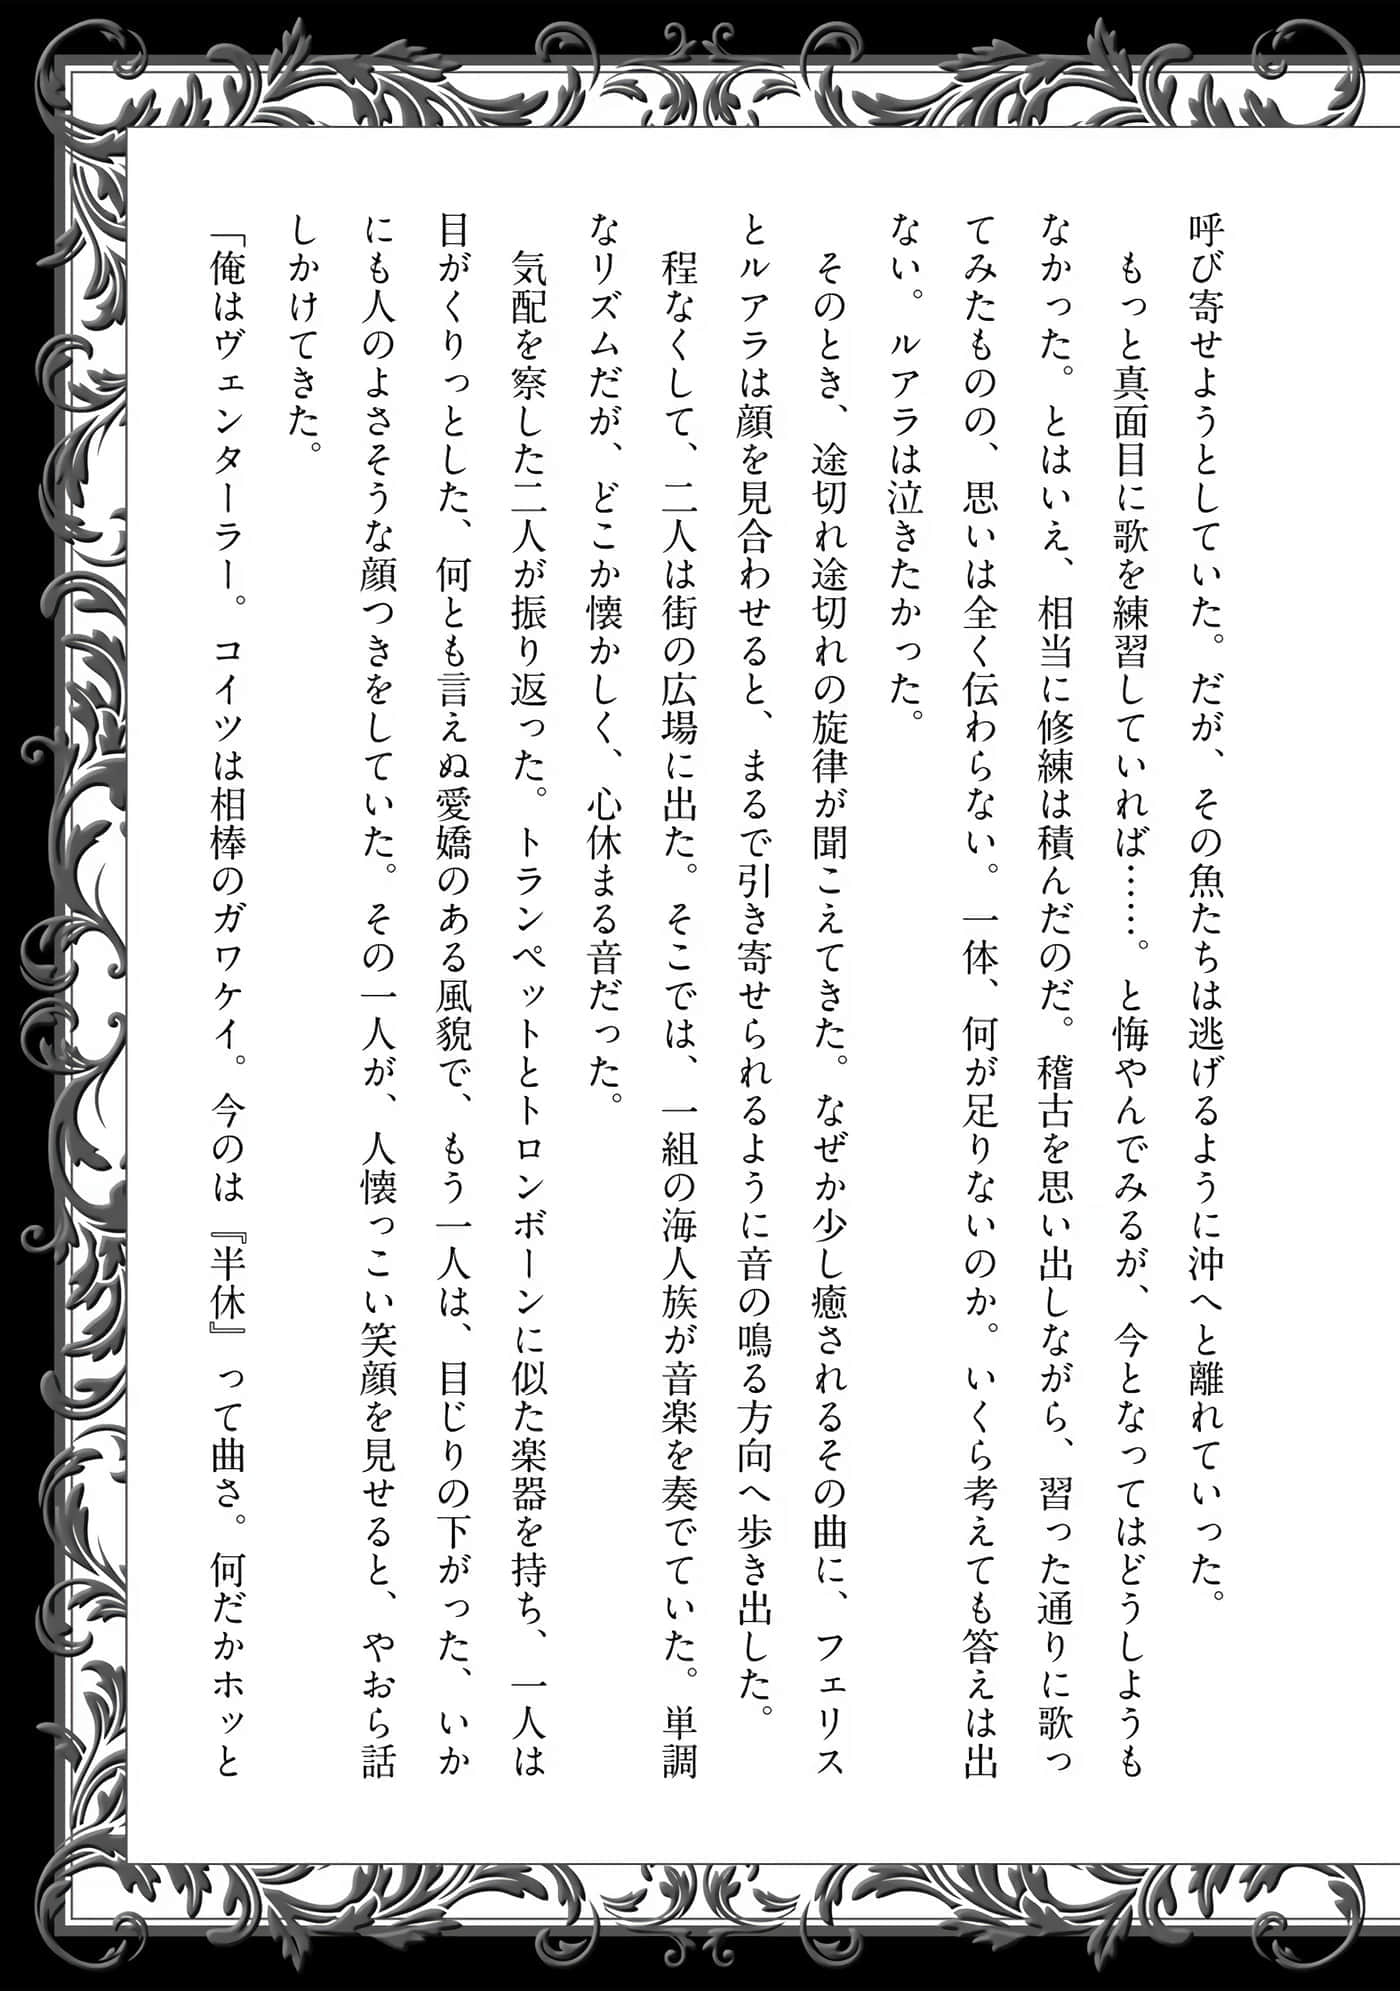 呼び寄せようとしていた。だが、その魚たちは逃げるように沖へと離れていった。
　もっと真面目に歌を練習していれば……。と悔やんでみるが、今となってはどうしようも
なかった。とはいえ、相当に修練は積んだのだ。稽古を思い出しながら、習った通りに歌っ
てみたものの、思いは全く伝わらない。一体、何が足りないのか。いくら考えても答えは出
ない。ルアラは泣きたかった。
　そのとき、途切れ途切れの旋律が聞こえてきた。なぜか少し癒されるその曲に、フェリス
とルアラは顔を見合わせると、まるで引き寄せられるように音の鳴る方向へ歩き出した。
　程なくして、二人は街の広場に出た。そこでは、一組の海人族が音楽を奏でていた。単調
なリズムだが、どこか懐かしく、心休まる音だった。
　気配を察した二人が振り返った。トランペットとトロンボーンに似た楽器を持ち、一人は
目がくりっとした、何とも言えぬ愛嬌のある風貌で、もう一人は、目じりの下がった、いか
にも人のよさそうな顔つきをしていた。その一人が、人懐っこい笑顔を見せると、やおら話
しかけてきた。
「俺はヴェンターラー。コイツは相棒のガワケイ。今のは『半休』って曲さ。何だかホッと